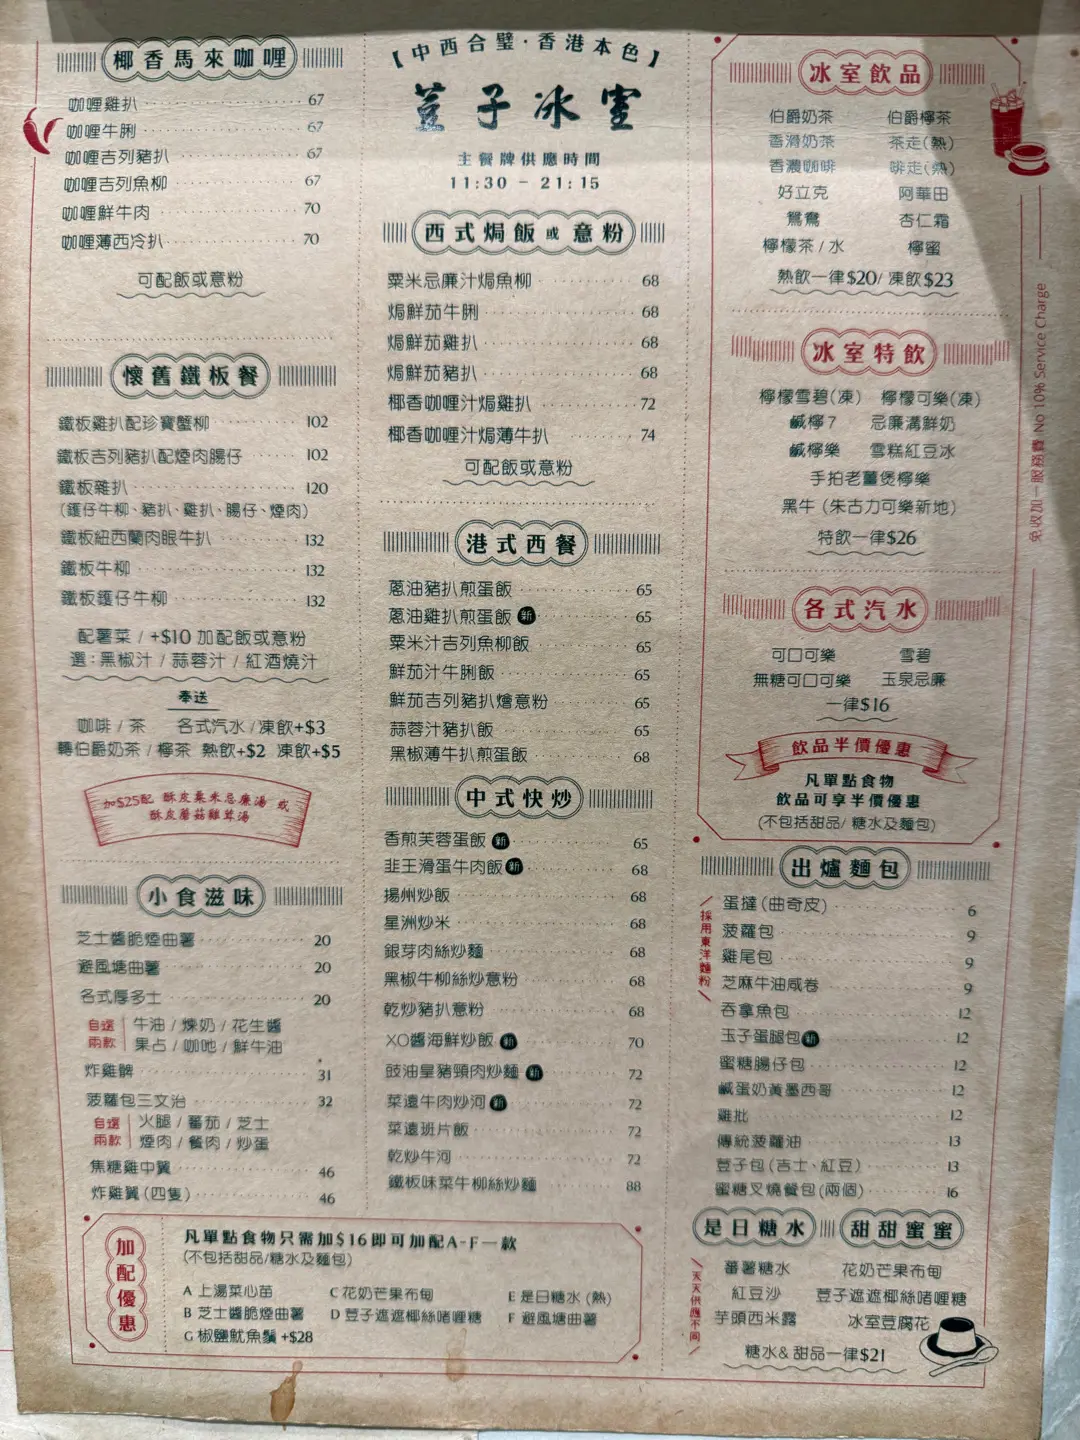 椰香馬來咖喱
咖喱雞扒 67
咖喱牛脷 67
咖喱吉列豬扒 67
咖喱吉列魚柳 67
咖喱鮮牛肉 70
咖喱薄西冷扒 70
可配飯或意粉
懷舊鐵板餐
鐵板雞扒配珍寶蟹柳 102
鐵板吉列豬扒配煙肉腸仔 102
鐵板雜扒 120
(鑊仔牛柳、豬扒、雞扒、腸仔、煙肉)
鐵板紐西蘭肉眼牛扒 132
鐵板牛柳 132
鐵板鑊仔牛柳 132
配薯菜 / +$10 加配飯或意粉
選:黑椒汁 / 蒜蓉汁 / 紅酒燒汁
奉送
咖啡 / 茶 各式汽水 / 凍飲+$3
轉伯爵奶茶 / 檸茶 熱飲+$2 凍飲+$5
加$25配 酥皮粟米忌廉湯 或
酥皮蘑菇雞茸湯
小食滋味
芝士醬脆煙曲薯 20
避風塘曲薯 20
各式厚多士 20
自選兩款 牛油 / 煉奶 / 花生醬
果占 / 咖吔 / 鮮牛油
炸雞髀 31
菠蘿包三文治 32
自選兩款 火腿 / 蕃茄 / 芝士
煙肉 / 餐肉 / 炒蛋
焦糖雞中翼 46
炸雞翼(四隻) 46
【中西合璧·香港本色】
荳子冰室
主餐牌供應時間
11:30 - 21:15
西式焗飯或意粉
粟米忌廉汁焗魚柳 68
焗鮮茄牛脷 68
焗鮮茄雞扒 68
焗鮮茄豬扒 68
椰香咖喱汁焗雞扒 72
椰香咖喱汁焗薄牛扒 74
可配飯或意粉
港式西餐
蔥油豬扒煎蛋飯 65
蔥油雞扒煎蛋飯 新 65
粟米汁吉列魚柳飯 65
鮮茄汁牛脷飯 65
鮮茄吉列豬扒燴意粉 65
蒜蓉汁豬扒飯 65
黑椒薄牛扒煎蛋飯 68
中式快炒
香煎芙蓉蛋飯 新 65
韭王滑蛋牛肉飯 新 68
揚州炒飯 68
星洲炒米 68
銀芽肉絲炒麵 68
黑椒牛柳絲炒意粉 68
乾炒豬扒意粉 68
XO醬海鮮炒飯 新 70
豉油皇豬頸肉炒麵 新 72
菜遠牛肉炒河 新 72
菜遠班片飯 72
乾炒牛河 72
鐵板味菜牛柳絲炒麵 88
冰室飲品
伯爵奶茶 伯爵檸茶
香滑奶茶 茶走(熱)
香濃咖啡 啡走(熱)
好立克 阿華田
鴛鴦 杏仁霜
檸檬茶 / 水 檸蜜
熱飲一律$20/ 凍飲$23
冰室特飲
檸檬雪碧(凍) 檸檬可樂(凍)
鹹檸7 忌廉溝鮮奶
鹹檸樂 雪糕紅豆冰
手拍老薑煲檸樂
黑牛 (朱古力可樂新地)
特飲一律$26
各式汽水
可口可樂 雪碧
無糖可口可樂 玉泉忌廉
一律$16
飲品半價優惠
凡單點食物
飲品可享半價優惠
(不包括甜品/ 糖水及麵包)
免收加一服務費 No 10% Service Charge
出爐麵包
採用東洋麵粉
蛋撻(曲奇皮) 6
菠蘿包 9
雞尾包 9
芝麻牛油咸卷 9
吞拿魚包 12
玉子蛋腿包 新 12
蜜糖腸仔包 12
鹹蛋奶黃墨西哥 12
雞批 12
傳統菠蘿油 13
荳子包(吉士、紅豆) 13
蜜糖叉燒餐包(兩個) 16
是日糖水 甜甜蜜蜜
天天供應不同
蕃薯糖水 花奶芒果布甸
紅豆沙 荳子遮遮椰絲啫喱糖
芋頭西米露 冰室豆腐花
糖水& 甜品一律$21
加配優惠
凡單點食物只需加$16即可加配A-F一款
(不包括甜品/糖水及麵包)
A 上湯菜心苗 C 花奶芒果布甸 E 是日糖水 (熱)
B 芝士醬脆煙曲薯 D 荳子遮遮椰絲啫喱糖 F 避風塘曲薯
G 椒鹽魷魚鬚 +$28